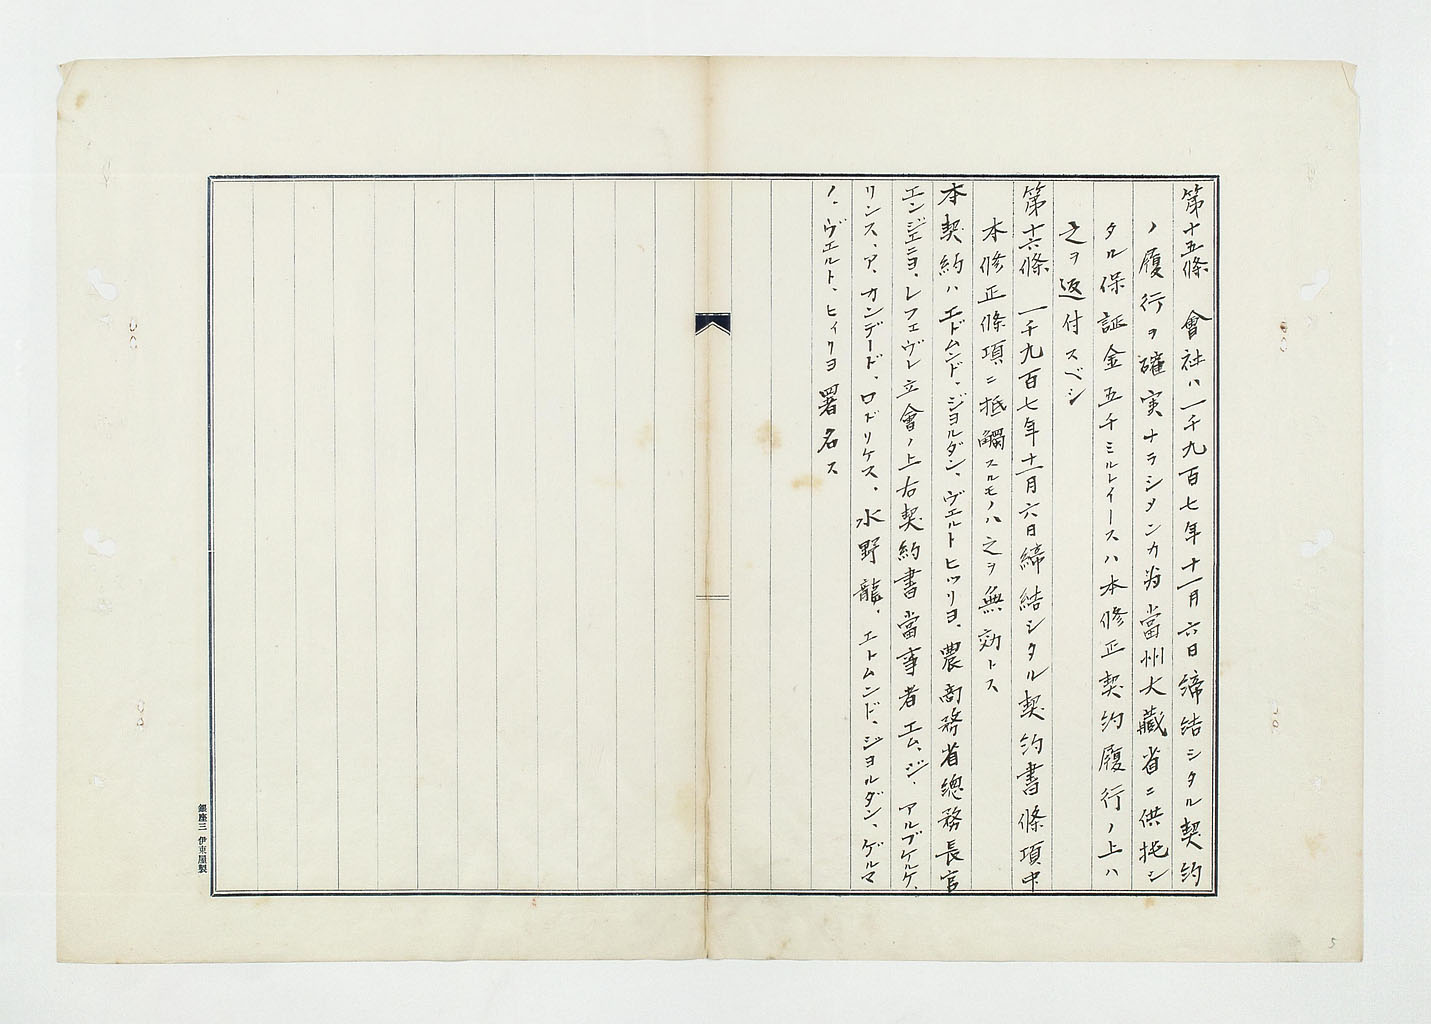 第十五條　會社ハ一千九百七年十一月六日締結シタル契約
ノ履行ヲ確実ナラシメンカ為當州大藏省ニ供托シ
タル保証金五千ミルレイースハ本修正契約履行ノ上ハ
之ヲ返付スベシ
第十六條　一千九百七年十一月六日締結シタル契約書條項中
本修正條項ニ抵觸スルモノハ之ヲ無効トス
本契約ハエドムンド、ジヨルダン、ヴエルトヒツリヨ、農商務省總務長官
エンジエニヨ、レフェヴレ立會ノ上右契約書當事者エム、ジ、アルブケルケ、
リンス、ア、カンデード、ロドリケス、水野龍、エトムンド、ジヨルダン、ゲルマ
ノ、ヴエルト、ヒィリヨ署名ス
銀座三 伊東屋製
5